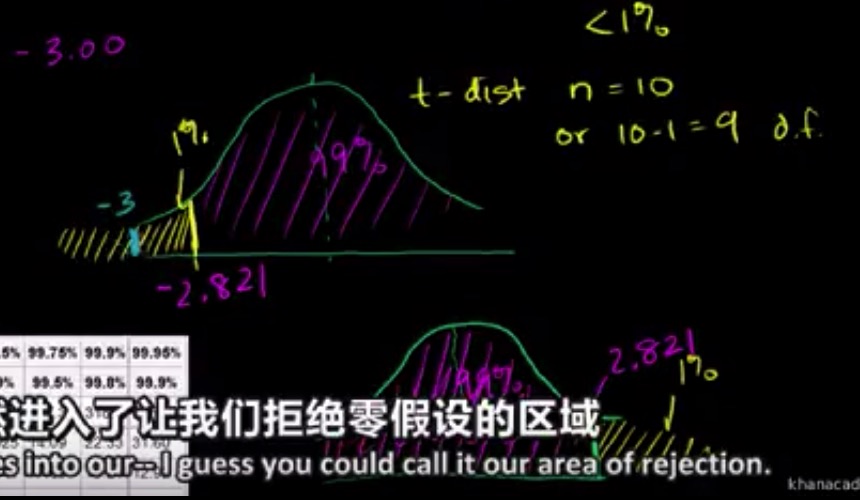 <1%
- 3.00
t-dist n = 10
or 10-1 = 9 d.f.
1%
99%
-3
-2.821
2.821
1%
99%
.5% 99.75% 99.9% 99.95%
9% 99.5% 99.8% 99.9%
进入了让我们拒绝零假设的区域
es into our-- I guess you could call it our area of rejection.
khanacad